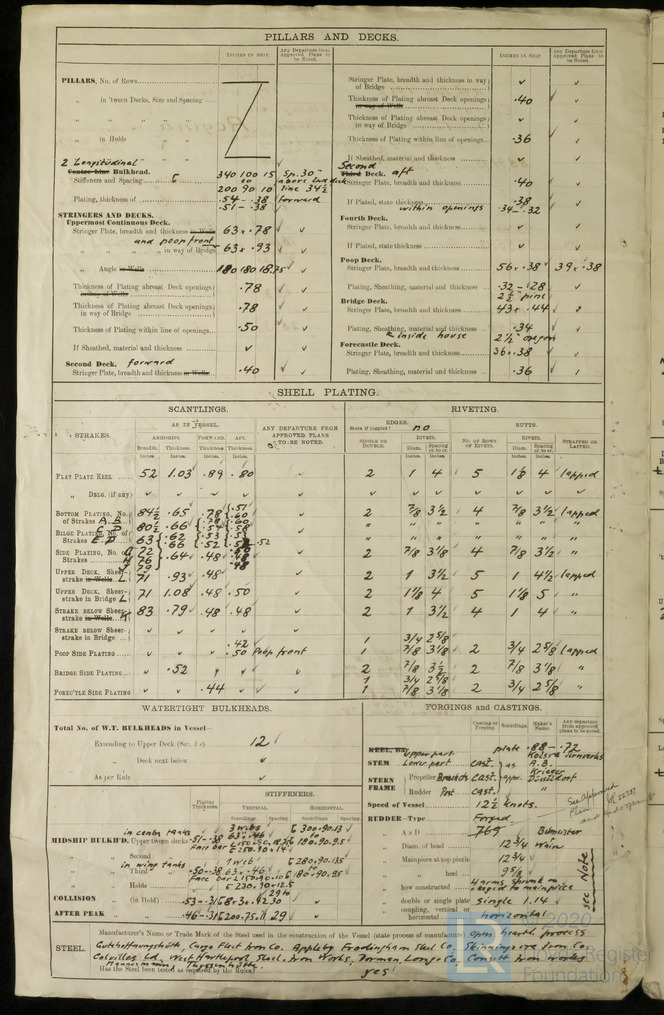 PILLARS AND DECKS.
INCHES IN SHIP.
Any Departure from Approved Plans to be Noted.
PILLARS, No. of Rows
„ in 'tween Decks, Size and Spacing
„ in Holds
2 Longitudinal
Centre Line Bulkhead.
Stiffeners and Spacing
340 100 15 Sp. 30"
200 90 10
Plating, thickness of
.54 - .38 forward
.51 - .38
STRINGERS AND DECKS.
Uppermost Continuous Deck.
Stringer Plate, breadth and thickness in Wells 63 x .78
and poop front
„ „ in way of Bridge 63 x .93
„ Angle in Wells 180 180 18.75
Thickness of Plating abreast Deck openings in way of Wells .78
Thickness of Plating abreast Deck openings in way of Bridge .78
Thickness of Plating within line of openings .50
If Sheathed, material and thickness
Second Deck. forward
Stringer Plate, breadth and thickness in Wells .40
INCHES IN SHIP.
Any Departure from Approved Plans to be Noted.
Stringer Plate, breadth and thickness in way of Bridge
Thickness of Plating abreast Deck openings in way of Wells .40
Thickness of Plating abreast Deck openings in way of Bridge
Thickness of Plating within line of openings .36
If Sheathed, material and thickness
Second
Third Deck. aft
Stringer Plate, breadth and thickness .40
If Plated, state thickness .38
within openings .34 - .32
Fourth Deck.
Stringer Plate, breadth and thickness
If Plated, state thickness
Poop Deck.
Stringer Plate, breadth and thickness 56 x .38 39 x .38
Plating, Sheathing, material and thickness .32 - .28
2½ pine
Bridge Deck.
Stringer Plate, breadth and thickness 43 x .44
Plating, Sheathing, material and thickness .34
inside house 2½" oregon
Forecastle Deck.
Stringer Plate, breadth and thickness 36 x .38
Plating, Sheathing, material and thickness .36
SHELL PLATING.
SCANTLINGS.
RIVETING.
STRAKES.
AS IN VESSEL.
ANY DEPARTURE FROM APPROVED PLANS TO BE NOTED.
EDGES.
State if joggled? no
BUTTS.
AMIDSHIPS. FORWARD. AFT.
Breadth. Thickness. Thickness. Thickness.
Inches. Inches. Inches. Inches.
SINGLE OR DOUBLE.
RIVETS.
Diam. Spacing cr. to cr.
NO. OF ROWS OF RIVETS.
RIVETS.
Diam. Spacing cr. to cr.
STRAPPED OR LAPPED.
FLAT PLATE KEEL 52 1.03 .89 .80 2 1 4 5 1⅛ 4 lapped
„ DBLG. (if any)
BOTTOM PLATING, No. of Strakes A. B. 84½ .65 .78 2 7/8 3½ 4 7/8 3½ lapped
C. D. 80½ .66 .54
BILGE PLATING, No. of Strakes E. D. 63 .62 .53
.66 .52 .52
SIDE PLATING, No. of Strakes G 72 .64 .48 2 7/8 3⅛ 4 7/8 3½ „
76
79
UPPER DECK, Sheer-strake in Wells L 71 .93 .48 2 1 3½ 5 1 4½ lapped
UPPER DECK, Sheer-strake in Bridge L 71 1.08 .48 .50 2 1⅛ 4 5 1⅛ 5 „
STRAKE BELOW SHEER-strake in Wells 83 .79 .48 .48 2 1 3½ 4 1 4 „
STRAKE BELOW SHEER-strake in Bridge
POOP SIDE PLATING .42
.50 Poop front 1 3/4 2⅝
1 7/8 3⅛ 2 3/4 2⅝ lapped
BRIDGE SIDE PLATING .52 2 7/8 3½ 2 7/8 3⅛ „
FORE'CTLE SIDE PLATING .44 1 3/4 2⅝
1 7/8 3⅛ 2 3/4 2⅝ „
WATERTIGHT BULKHEADS.
Total No. of W.T. BULKHEADS in Vessel—
Extending to Upper Deck (Sec. 3 c) 12
„ Deck next below
As per Rule
STIFFENERS.
Plating Thickness.
VERTICAL.
HORIZONTAL.
Scantlings. Spacing. Scantlings. Spacing.
in centre tanks 3 webs
MIDSHIP BULKH'D. Upper 'tween decks .51 - .38 63 x .46 300.90.13
180.90.95
„ Second
in wing tanks 1 web 280.90.135
„ Third .50 - .38 63 x .46
180.90.95
„ Holds 230.90.12.5
29 to
COLLISION „ (in Hold) 30
AFTER PEAK „ „ 29
FORGINGS and CASTINGS.
Casting or Forging. Scantlings. Maker's Name. Any departure from approved plans to be noted.
KEEL, Bar
STEM upper part plate .88 - .72
Lower part cast.
STERN FRAME Propeller cast. appr. Krieger Düsseldorf
Rudder Post cast. „
Speed of Vessel 12½ knots.
RUDDER—Type Forged
A x D 769 Bumeister
Diam. of head 12¾ Wain
Mainpiece at top pintle 12¾
„ heel 9⅝
how constructed 4 arms shrunk on & keyed to mainpiece
double or single plate single 1.14
coupling, vertical or horizontal horizontal
See Approved Plan
see Note
Manufacturer's Name or Trade Mark of the Steel used in the construction of the Vessel (state process of manufacture) open hearth process
STEEL. Gutehoffnungshütte, Cargo Fleet Iron Co. Appleby Frodingham Steel Co. Skinningrove Iron Co.
Colvilles Ld, West Hartlepool Steel & Iron Works, Dorman, Long & Co. Consett Iron Works
Mannesmann, Thyssenhütte.
Has the Steel been tested as required by the Rules? yes
LR
2020
Lloyd's Register
Foundation